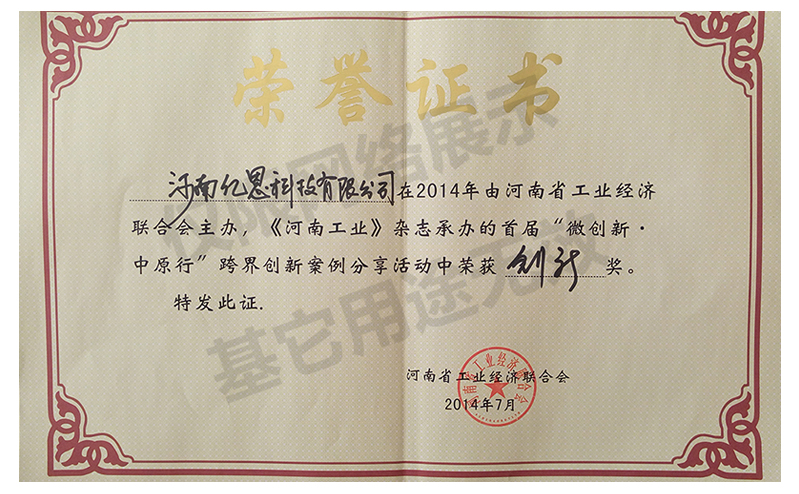 荣誉证书
河南亿恩科技有限公司在2014年由河南省工业经济
联合会主办，《河南工业》杂志承办的首届“微创新·
中原行”跨界创新案例分享活动中荣获 创新 奖。
特发此证.
河南省工业经济联合会
2014年7月
河南省工业经济联合会
仅限网络展示
基它用途无效